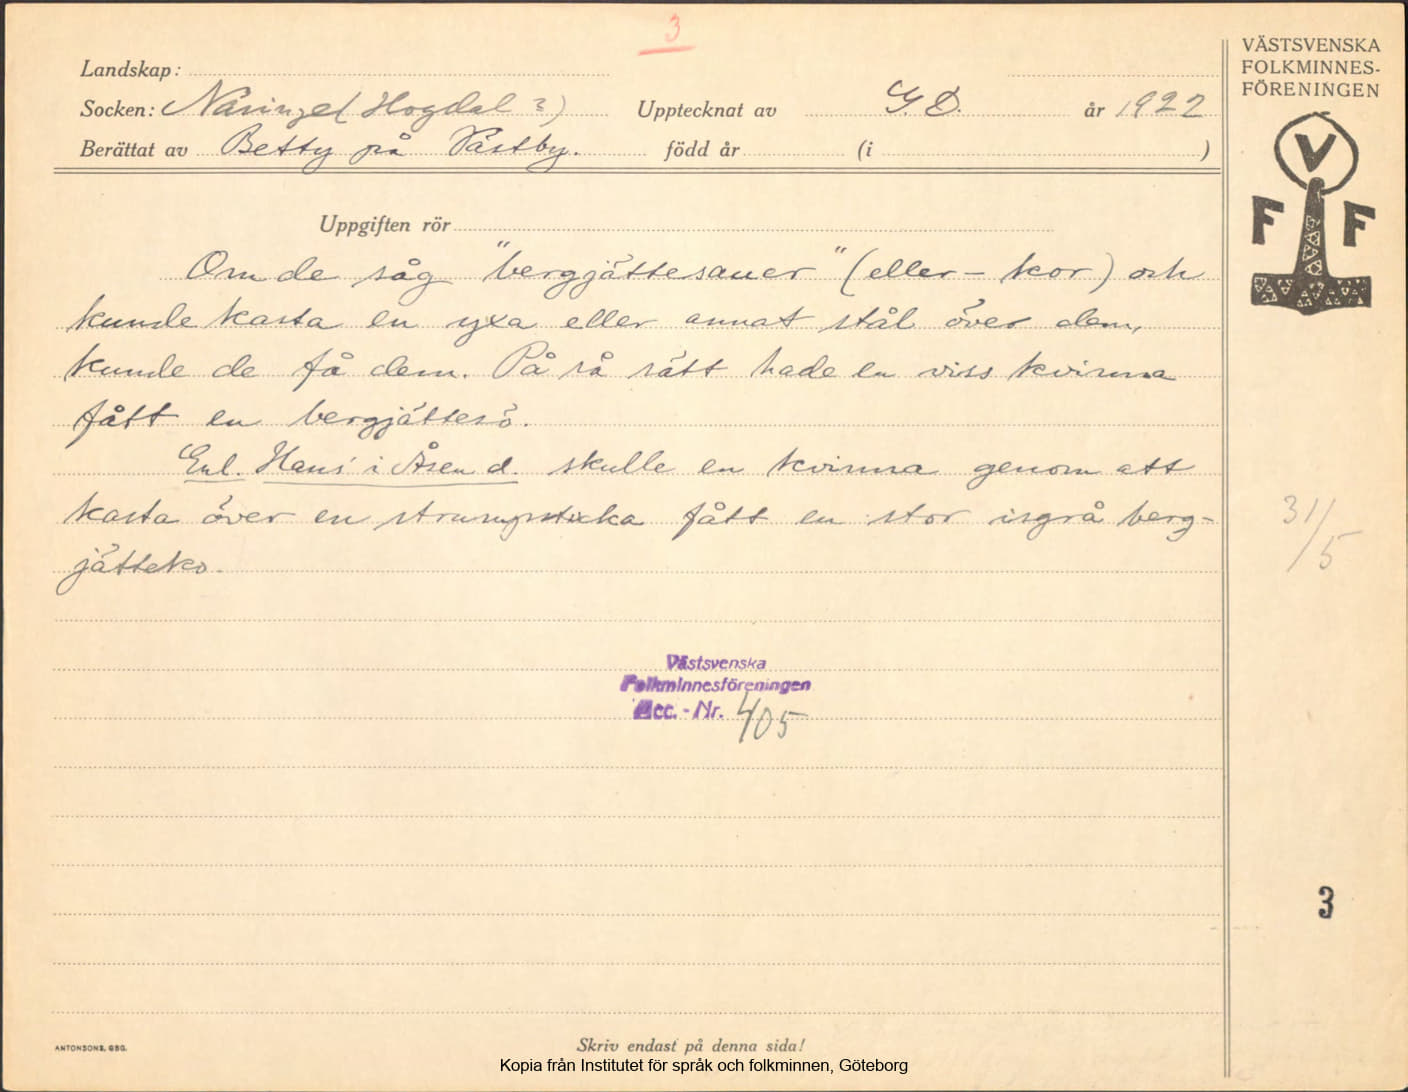 3
VÄSTSVENSKA
FOLKMINNES-
FÖRENINGEN
V
F F
Landskap:
Socken: Näsinge (Hogdal?) Upptecknat av G. D. år 1922
Berättat av Betty på Västby. född år (i )
Uppgiften rör
Om de såg "bergjättesauer" (eller - kor) och
kunde kasta en yxa eller annat stål över dem,
kunde de få dem. På så sätt hade en viss kvinna
fått en bergjättesö.
Enl. Hans i Åsen d. skulle en kvinna genom att
kasta över en strumpsticka fått en stor isgrå berg-
jätteko.
31/5
Västsvenska
Folkminnesföreningen
Acc. - Nr. 405
3
ANTONSONS, GBG.
Skriv endast på denna sida!
Kopia från Institutet för språk och folkminnen, Göteborg